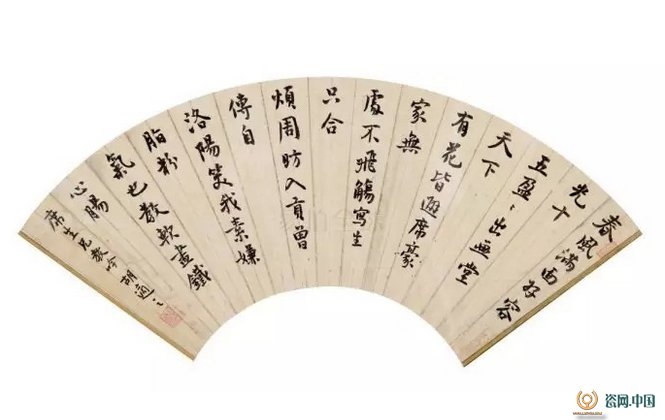 春風滿面好容
光十
五盈、出畫堂
天下
有花皆避席豪
家無
處不飛觴寫生
只合
煩周昉入貢曾
傳自
洛陽笑我素嫌
脂粉
氣也教軟盡鐵
心腸
席生兄教吟 胡適
瓷网.中国